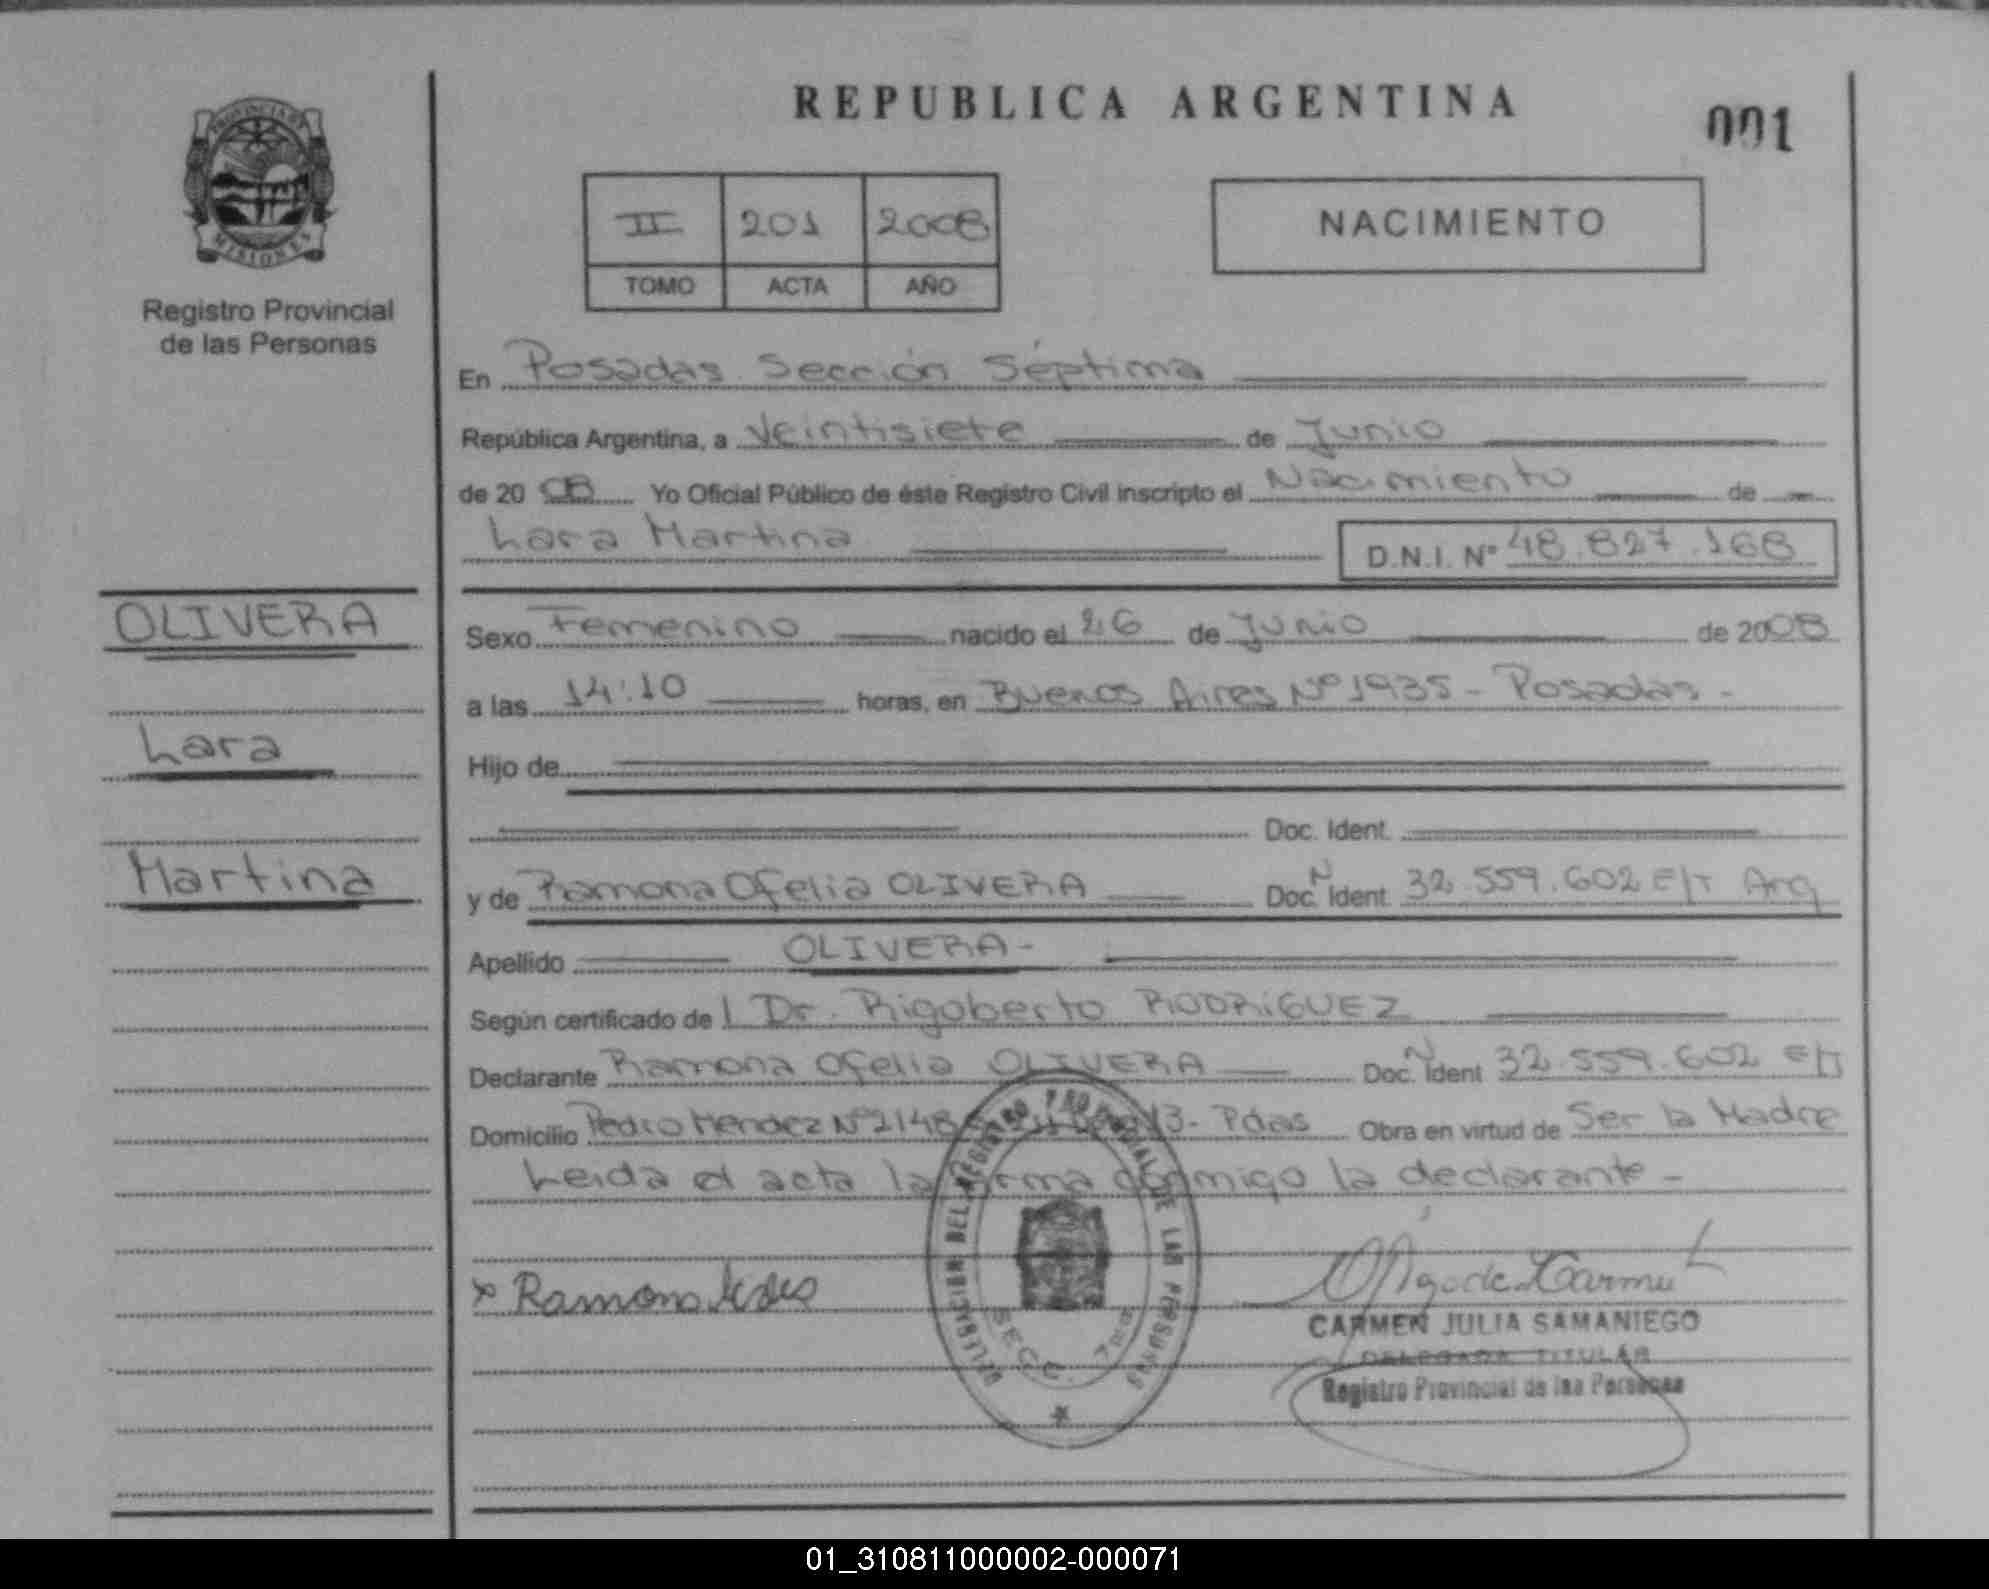 REPUBLICA ARGENTINA
001
PROVINCIA DE
MISIONES
Registro Provincial
de las Personas
II 201 2008
TOMO ACTA AÑO
NACIMIENTO
En Posadas Sección Séptima
República Argentina, a Veintisiete de Junio
de 20 08 Yo Oficial Público de éste Registro Civil inscripto el Nacimiento de
Lara Martina D.N.I. Nº 48.827.168
OLIVERA
Lara
Martina
Sexo Femenino nacido el 26 de Junio de 2008
a las 14:10 horas, en Buenos Aires Nº 1935 - Posadas -
Hijo de
Doc. Ident.
y de Ramona Ofelia OLIVERA Doc. N Ident. 32.559.602 E/T Arg
Apellido OLIVERA -
Según certificado de l Dr. Rigoberto RODRiGUEZ
Declarante Ramona Ofelia OLIVERA Doc. N Ident 32.559.602 E/T
Domicilio Pedro Mendez Nº 2148 - Pdas Obra en virtud de Ser la Madre
Leida el acta la firma conmigo la declarante -
DELEGACION DEL REGISTRO PROVINCIAL DE LAS PERSONAS
SECC. 7ma
x Ramona
CARMEN JULIA SAMANIEGO
DELEGADA TITULAR
Registro Provincial de las Personas
01_310811000002-000071